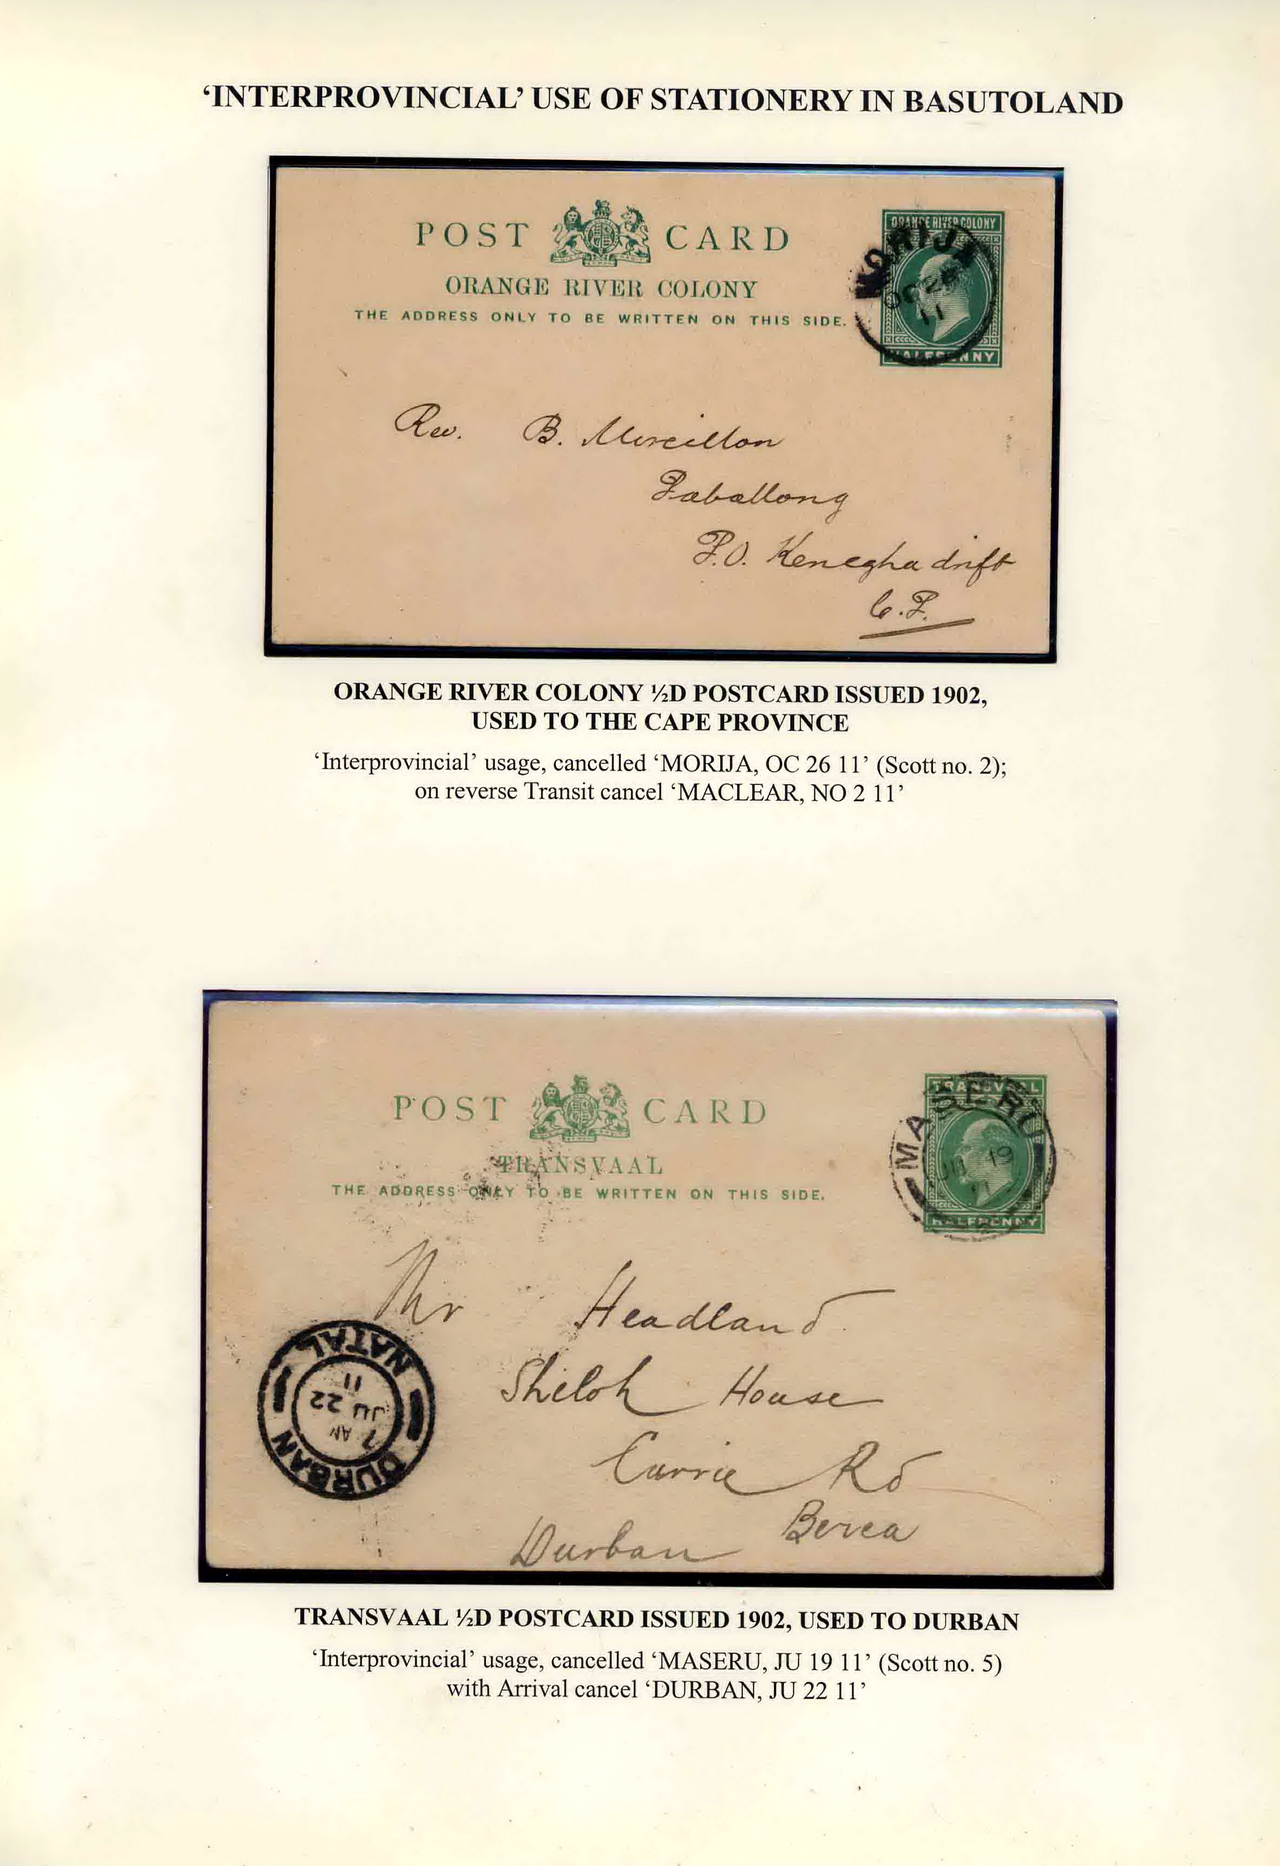 ‘INTERPROVINCIAL’ USE OF STATIONERY IN BASUTOLAND
POST CARD
ORANGE RIVER COLONY
THE ADDRESS ONLY TO BE WRITTEN ON THIS SIDE.
ORANGE RIVER COLONY
HALFPENNY
MORIJA
OC 26
11
Rev. B. Mercillon
Paballong
P.O. Kenegha drift
C.P.
ORANGE RIVER COLONY ½D POSTCARD ISSUED 1902,
USED TO THE CAPE PROVINCE
‘Interprovincial’ usage, cancelled ‘MORIJA, OC 26 11’ (Scott no. 2);
on reverse Transit cancel ‘MACLEAR, NO 2 11’
POST CARD
TRANSVAAL
THE ADDRESS ONLY TO BE WRITTEN ON THIS SIDE.
TRANSVAAL
HALFPENNY
MASERU
JU 19
11
Mr Headland
Shiloh House
Currie Rd
Berea
Durban
DURBAN
7 AM
JU 22
11
NATAL
TRANSVAAL ½D POSTCARD ISSUED 1902, USED TO DURBAN
‘Interprovincial’ usage, cancelled ‘MASERU, JU 19 11’ (Scott no. 5)
with Arrival cancel ‘DURBAN, JU 22 11’